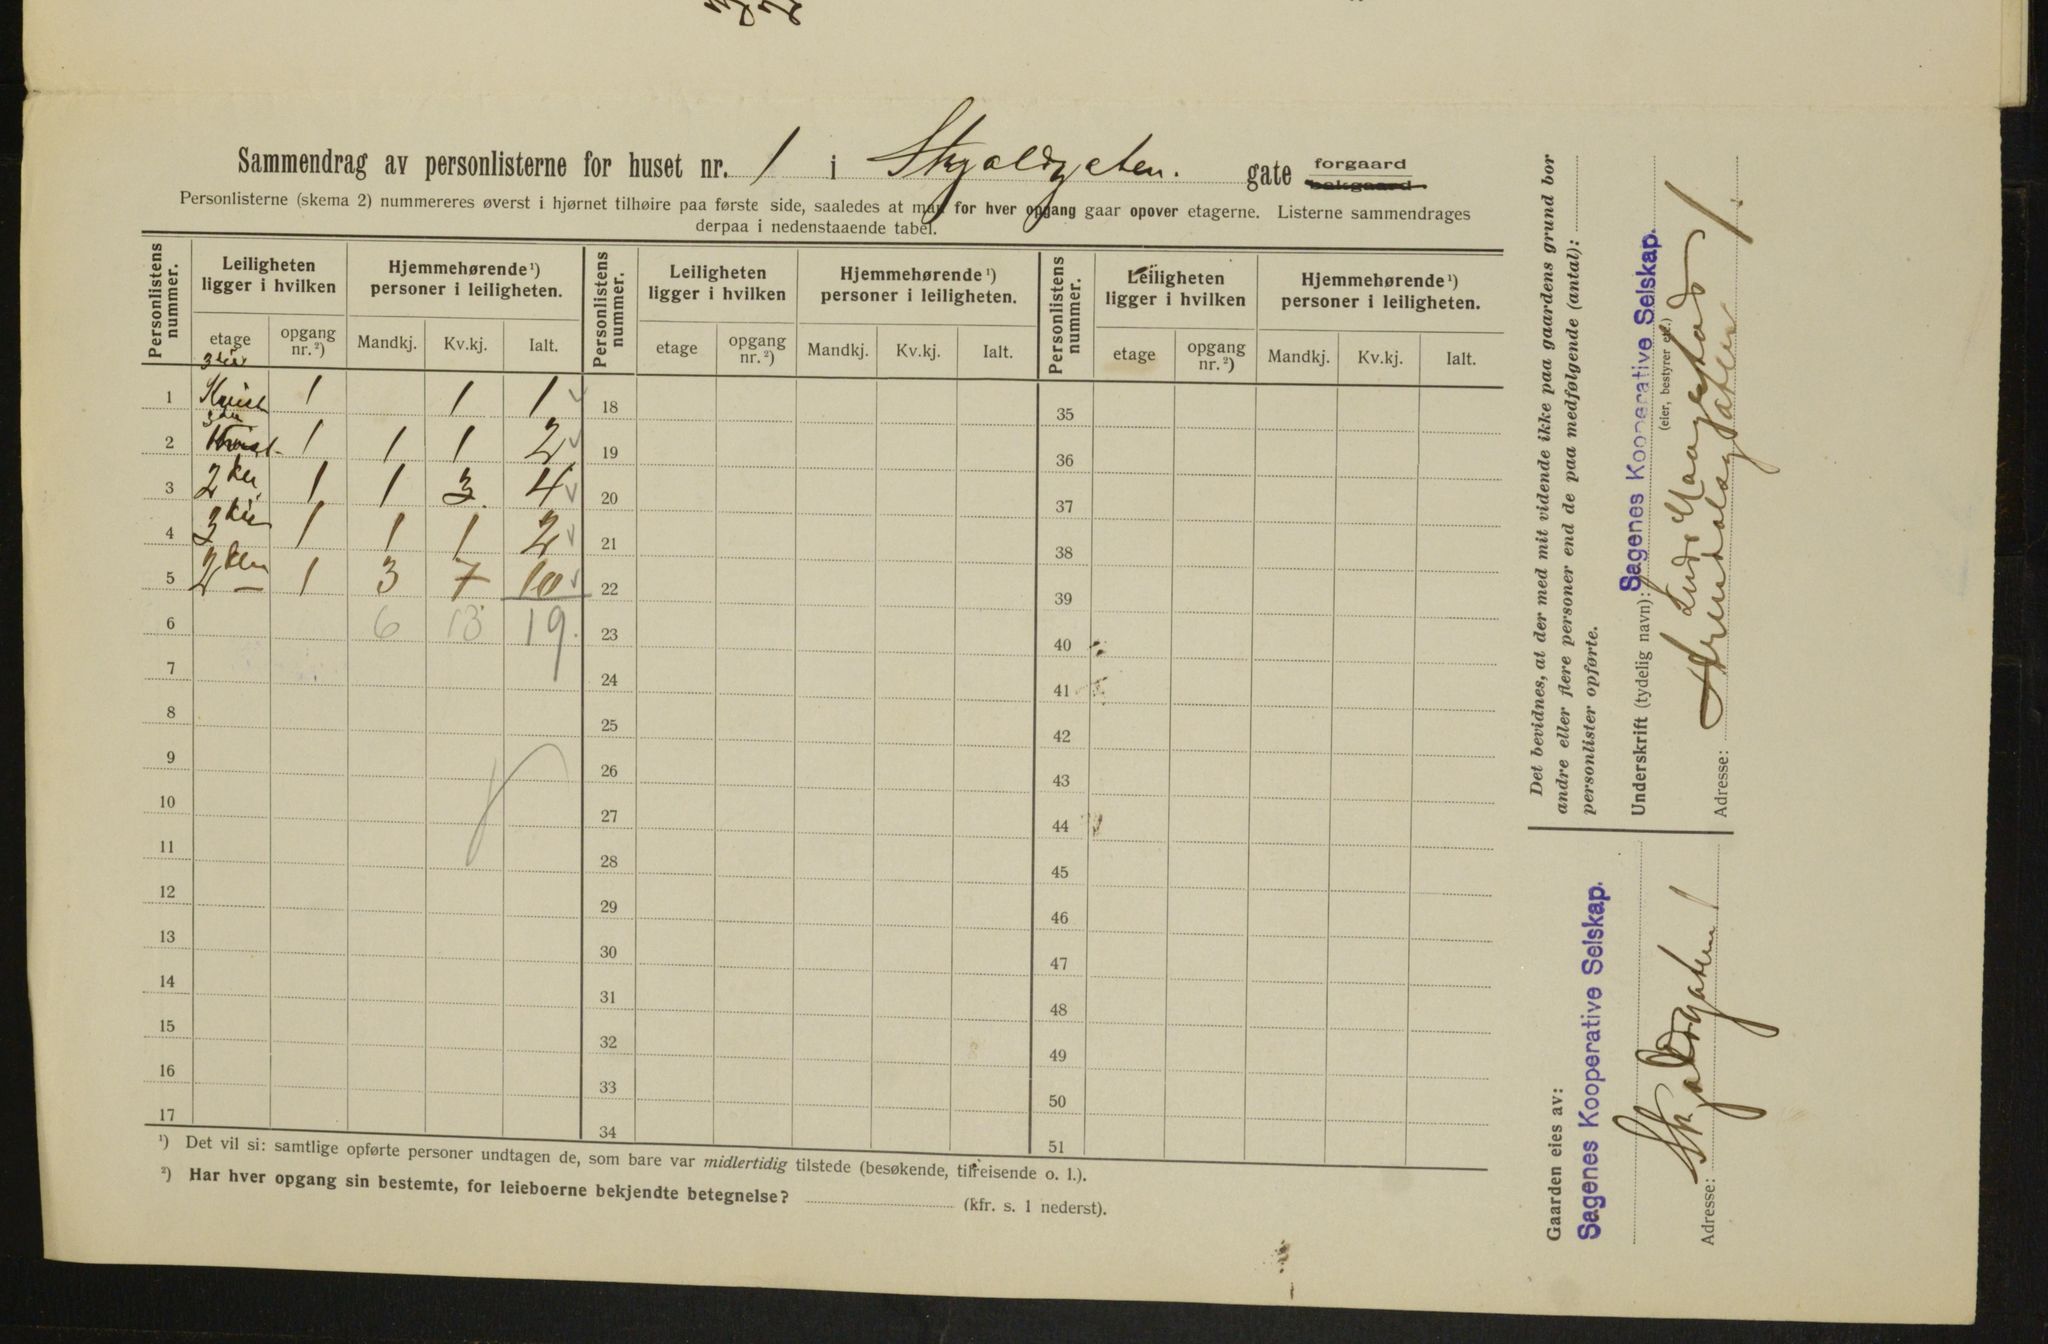 Sammendrag av personlisterne for huset nr. 1 i Skjoldgaten. gate forgaard bakgaard
Personlisterne (skema 2) nummereres øverst i hjørnet tilhøire paa første side, saaledes at man for hver opgang gaar opover etagerne. Listerne sammendrages
derpaa i nedenstaaende tabel.
Personlistens nummer. Leiligheten ligger i hvilken Hjemmehørende ¹) personer i leiligheten. Personlistens nummer. Leiligheten ligger i hvilken Hjemmehørende ¹) personer i leiligheten. Personlistens nummer. Leiligheten ligger i hvilken Hjemmehørende ¹) personer i leiligheten.
etage opgang nr. ²) Mandkj. Kv.kj. Ialt. etage opgang nr. ²) Mandkj. Kv.kj. Ialt. etage opgang nr. ²) Mandkj. Kv.kj. Ialt.
1 Kvist 1 1 1 18 35
2 Kvist 1 1 1 2 19 36
3 2 1 1 3 4 20 37
4 1 1 1 2 21 38
5 2 – 1 3 7 10 22 39
6 6 13 19. 23 40
7 24 41
8 25 42
9 26 43
10 27 44
11 28 45
12 29 46
13 30 47
14 31 48
15 32 49
16 33 50
17 34 51
¹) Det vil si: samtlige opførte personer undtagen de, som bare var midlertidig tilstede (besøkende, tilreisende o. l.).
²) Har hver opgang sin bestemte, for leieboerne bekjendte betegnelse? (kfr. s. 1 nederst).
Det bevidnes, at der med mit vidende ikke paa gaardens grund bor
andre eller flere personer end de paa medfølgende (antal):
personlister opførte.
Sagenes Kooperative Selskap.
Underskrift (tydelig navn):
(eier, bestyrer etc.)
Adresse: Arendalsgaten 1.
Gaarden eies av:
Sagenes Kooperative Selskap.
Adresse: Skjoldgaten 1